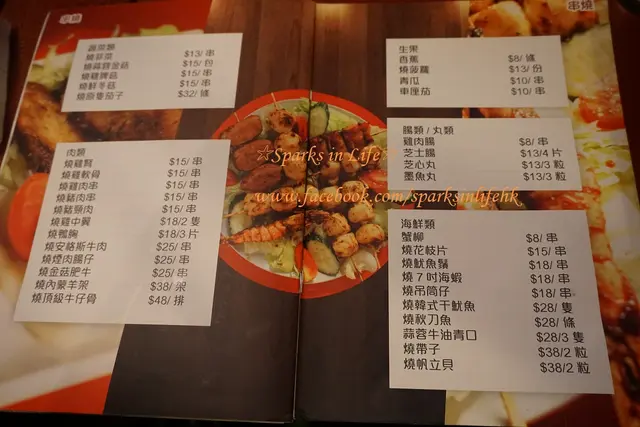 串燒
蔬菜類
燒韭菜 $13/ 串
燒雞髀金菇 $15/ 包
燒雞髀菇 $15/ 串
燒鮮冬菇 $15/ 串
燒原隻茄子 $32/ 條
肉類
燒雞腎 $15/ 串
燒雞軟骨 $15/ 串
燒雞肉串 $15/ 串
燒豬肉串 $15/ 串
燒豬頸肉 $15/ 串
燒雞中翼 $18/2 隻
燒鴨胸 $18/3 片
燒安格斯牛肉 $25/ 串
燒煙肉腸仔 $25/ 串
燒金菇肥牛 $25/ 串
燒內蒙羊架 $38/
燒頂級牛仔骨 $48/ 排
串燒
生果
香蕉 $8/ 條
燒菠蘿 $13/ 份
青瓜 $10/ 串
車厘茄 $10/ 串
腸類 / 丸類
雞肉腸 $8/ 串
芝士腸 $13/4 片
芝心丸 $13/3 粒
墨魚丸 $13/3 粒
海鮮類
蟹柳 $8/ 串
燒花枝片 $15/ 串
燒魷魚鬚 $18/ 串
燒 7 吋海蝦 $18/ 串
燒吊筒仔 $18/ 串
燒韓式干魷魚 $28/ 隻
燒秋刀魚 $28/ 條
蒜蓉牛油青口 $28/3 隻
燒帶子 $38/2 粒
燒帆立貝 $38/2 粒
☆Sparks in Life☆
www.facebook.com/sparksinlifehk